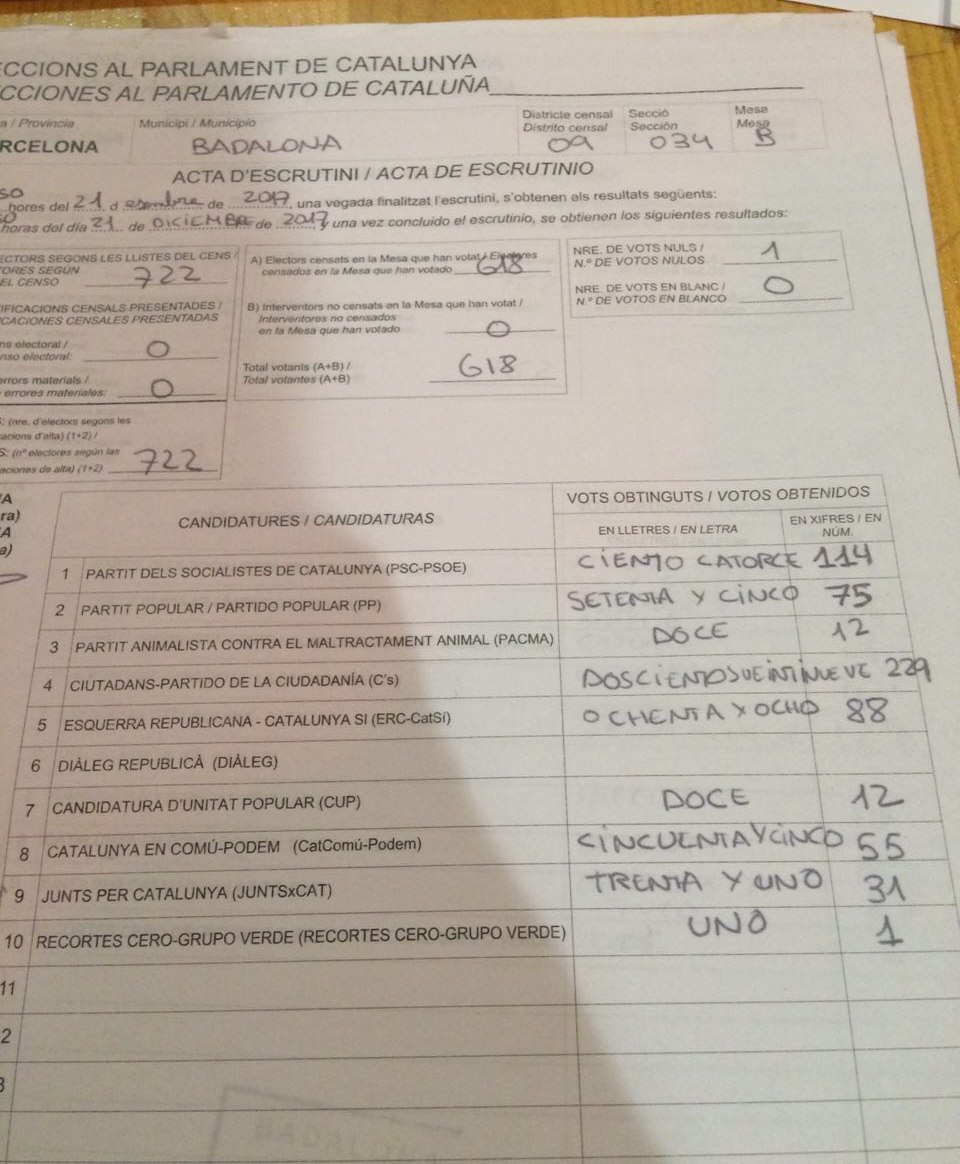 CCIONS AL PARLAMENT DE CATALUNYA
CCIONES AL PARLAMENTO DE CATALUÑA
a / Provincia
Municipi / Municipio
Districte censal
Distrito censal
Secció
Sección
Mesa
Mesa
RCELONA
BADALONA
09
034
B
ACTA D'ESCRUTINI / ACTA DE ESCRUTINIO
hores del 21 d esembre de 2017, una vegada finalitzat l'escrutini, s'obtenen als resultats següents:
horas del día 21 de DICIEMBRE de 2017 y una vez concluido el escrutinio, se obtienen los siguientes resultados:
ECTORS SEGONS LES LLISTES DEL CENS /
TORES SEGÚN
EL CENSO 722
IFICACIONS CENSALS PRESENTADES /
CACIONES CENSALES PRESENTADAS
ns electoral /
nso electoral: 0
errors materials /
errores materiales: 0
S: (nre. d'electors segons les
cacions d'alta) (1+2) /
S: (nº electores según las
aciones de alta) (1+2) 722
A) Electors censats en la Mesa que han votat / Electores
censados en la Mesa que han votado 618
B) Interventors no censats en la Mesa que han votat /
Interventores no censados
en la Mesa que han votado 0
Total votants (A+B) /
Total votantes (A+B) 618
NRE. DE VOTS NULS /
N.º DE VOTOS NULOS 1
NRE. DE VOTS EN BLANC /
N.º DE VOTOS EN BLANCO 0
CANDIDATURES / CANDIDATURAS
VOTS OBTINGUTS / VOTOS OBTENIDOS
EN LLETRES / EN LETRA
EN XIFRES / EN
NÚM.
1 PARTIT DELS SOCIALISTES DE CATALUNYA (PSC-PSOE) CIENTO CATORCE 114
2 PARTIT POPULAR / PARTIDO POPULAR (PP) SETENTA Y CINCO 75
3 PARTIT ANIMALISTA CONTRA EL MALTRACTAMENT ANIMAL (PACMA) DOCE 12
4 CIUTADANS-PARTIDO DE LA CIUDADANÍA (C's) DOSCIENTOSVEINTINUEVE 229
5 ESQUERRA REPUBLICANA - CATALUNYA SI (ERC-CatSí) OCHENTA Y OCHO 88
6 DIÀLEG REPUBLICÀ (DIÀLEG)
7 CANDIDATURA D'UNITAT POPULAR (CUP) DOCE 12
8 CATALUNYA EN COMÚ-PODEM (CatComú-Podem) CINCUENTA Y CINCO 55
9 JUNTS PER CATALUNYA (JUNTSxCAT) TRENTA Y UNO 31
10 RECORTES CERO-GRUPO VERDE (RECORTES CERO-GRUPO VERDE) UNO 1
11
2
3